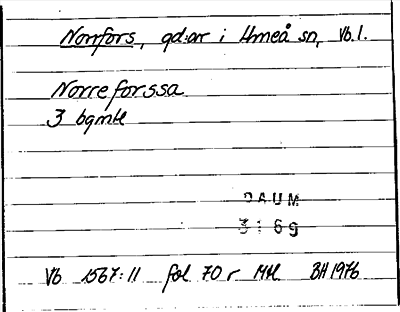 Norrfors, gd:ar i Umeå sn, Vb. l.
Norreforssa
3 bgmtl
DAUM
3169
Vb 1567:11 fol 70 r Mtl BH 1976